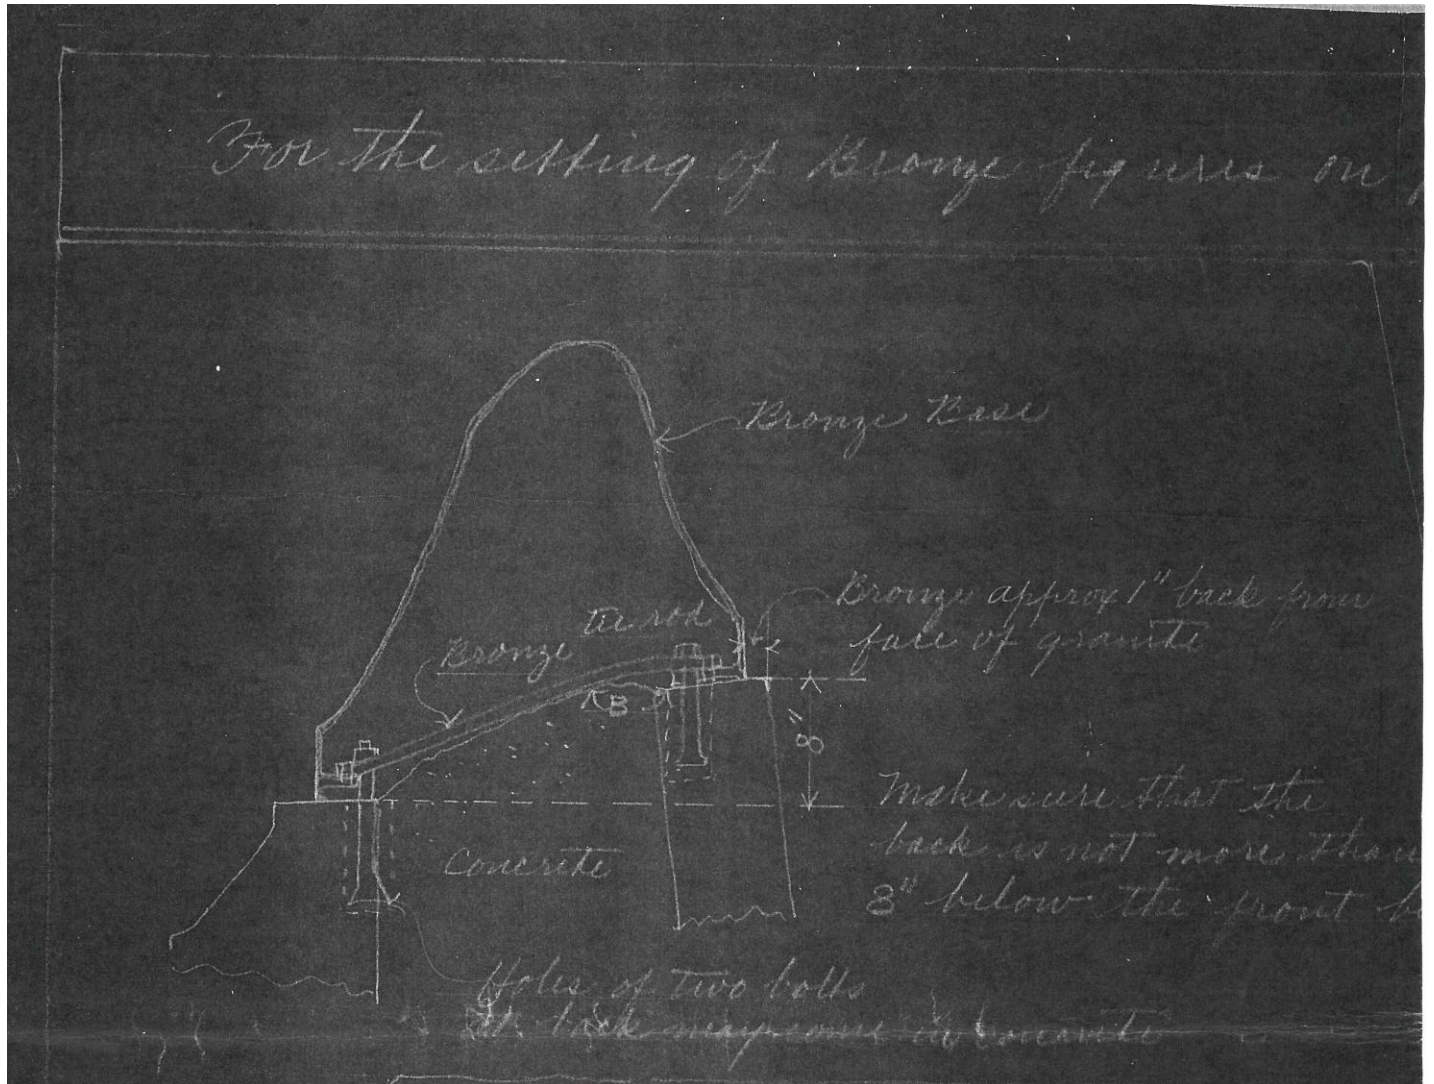 For the setting of Bronze figures on
Bronze Base
Bronze approx 1" back from
face of granite
Bronze tie rod
B
8"
Make sure that the
back is not more than
8" below the front
Concrete
Holes of two bolts
back may come in concrete